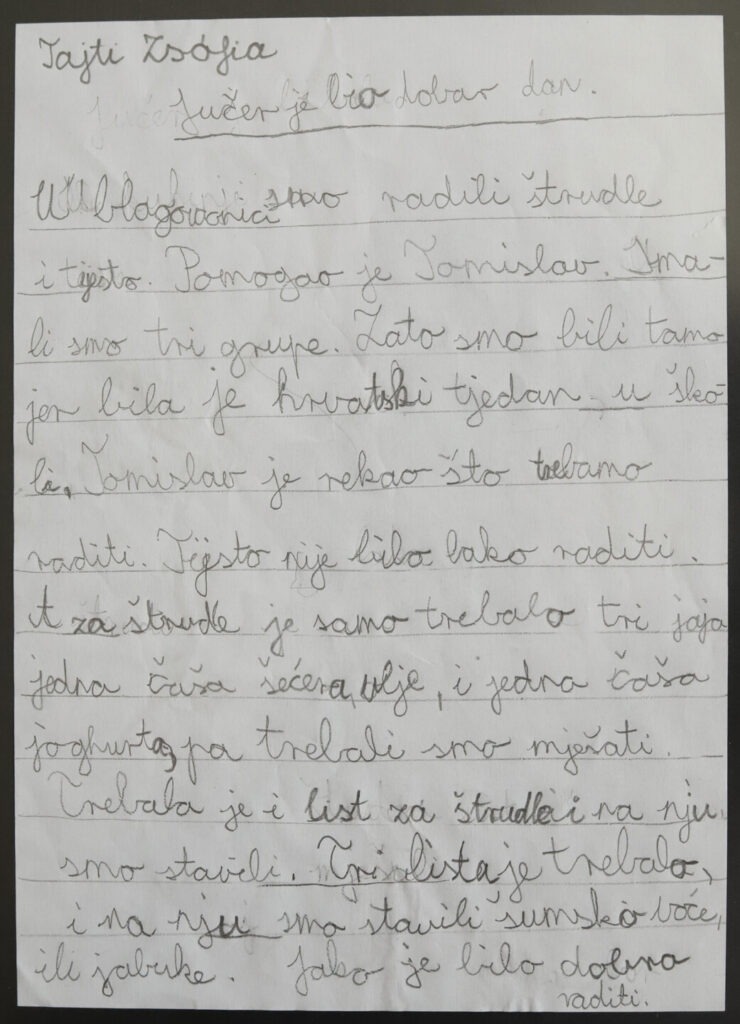 Tajti Zsófia
Jučer je bio dobar dan.
U blagovaonici smo radili štrudle
i tijesto. Pomogao je Tomislav. Ima-
li smo tri grupe. Zato smo bili tamo
jer bila je hrvatski tjedan u ško-
li. Tomislav je rekao što trebamo
raditi. Tijesto nije bilo lako raditi.
A za štrudle je samo trebalo tri jaja
jedna čaša šećera, ulje, i jedna čaša
joghurta, pa trebali smo mješati.
Trebala je i list za štrudle i na nju
smo stavili. Tri lista je trebalo,
i na nju smo stavili šumsko voće,
ili jabuke. Jako je bilo dobro
raditi.